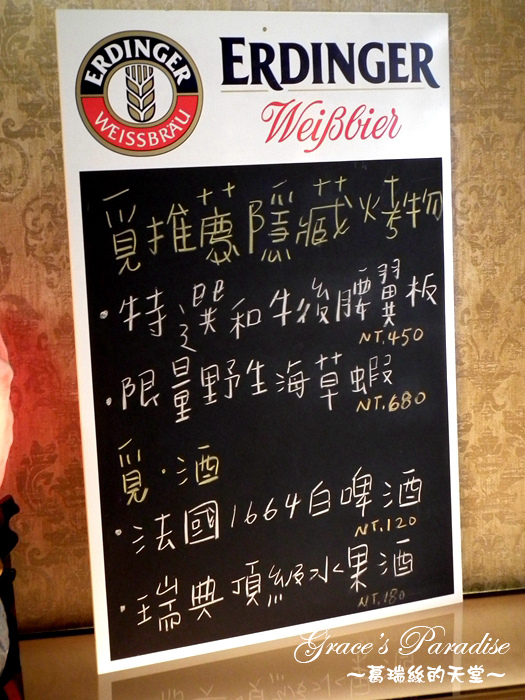 ERDINGER
WEISSBRÄU
ERDINGER
Weißbier
覓推薦隱藏烤物
·特選和牛後腰翼板
NT.450
·限量野生海草蝦
NT.680
覓·酒
·法國1664白啤酒
NT.120
·瑞典頂級水果酒
NT.180
Grace's Paradise
～葛瑞絲的天堂～